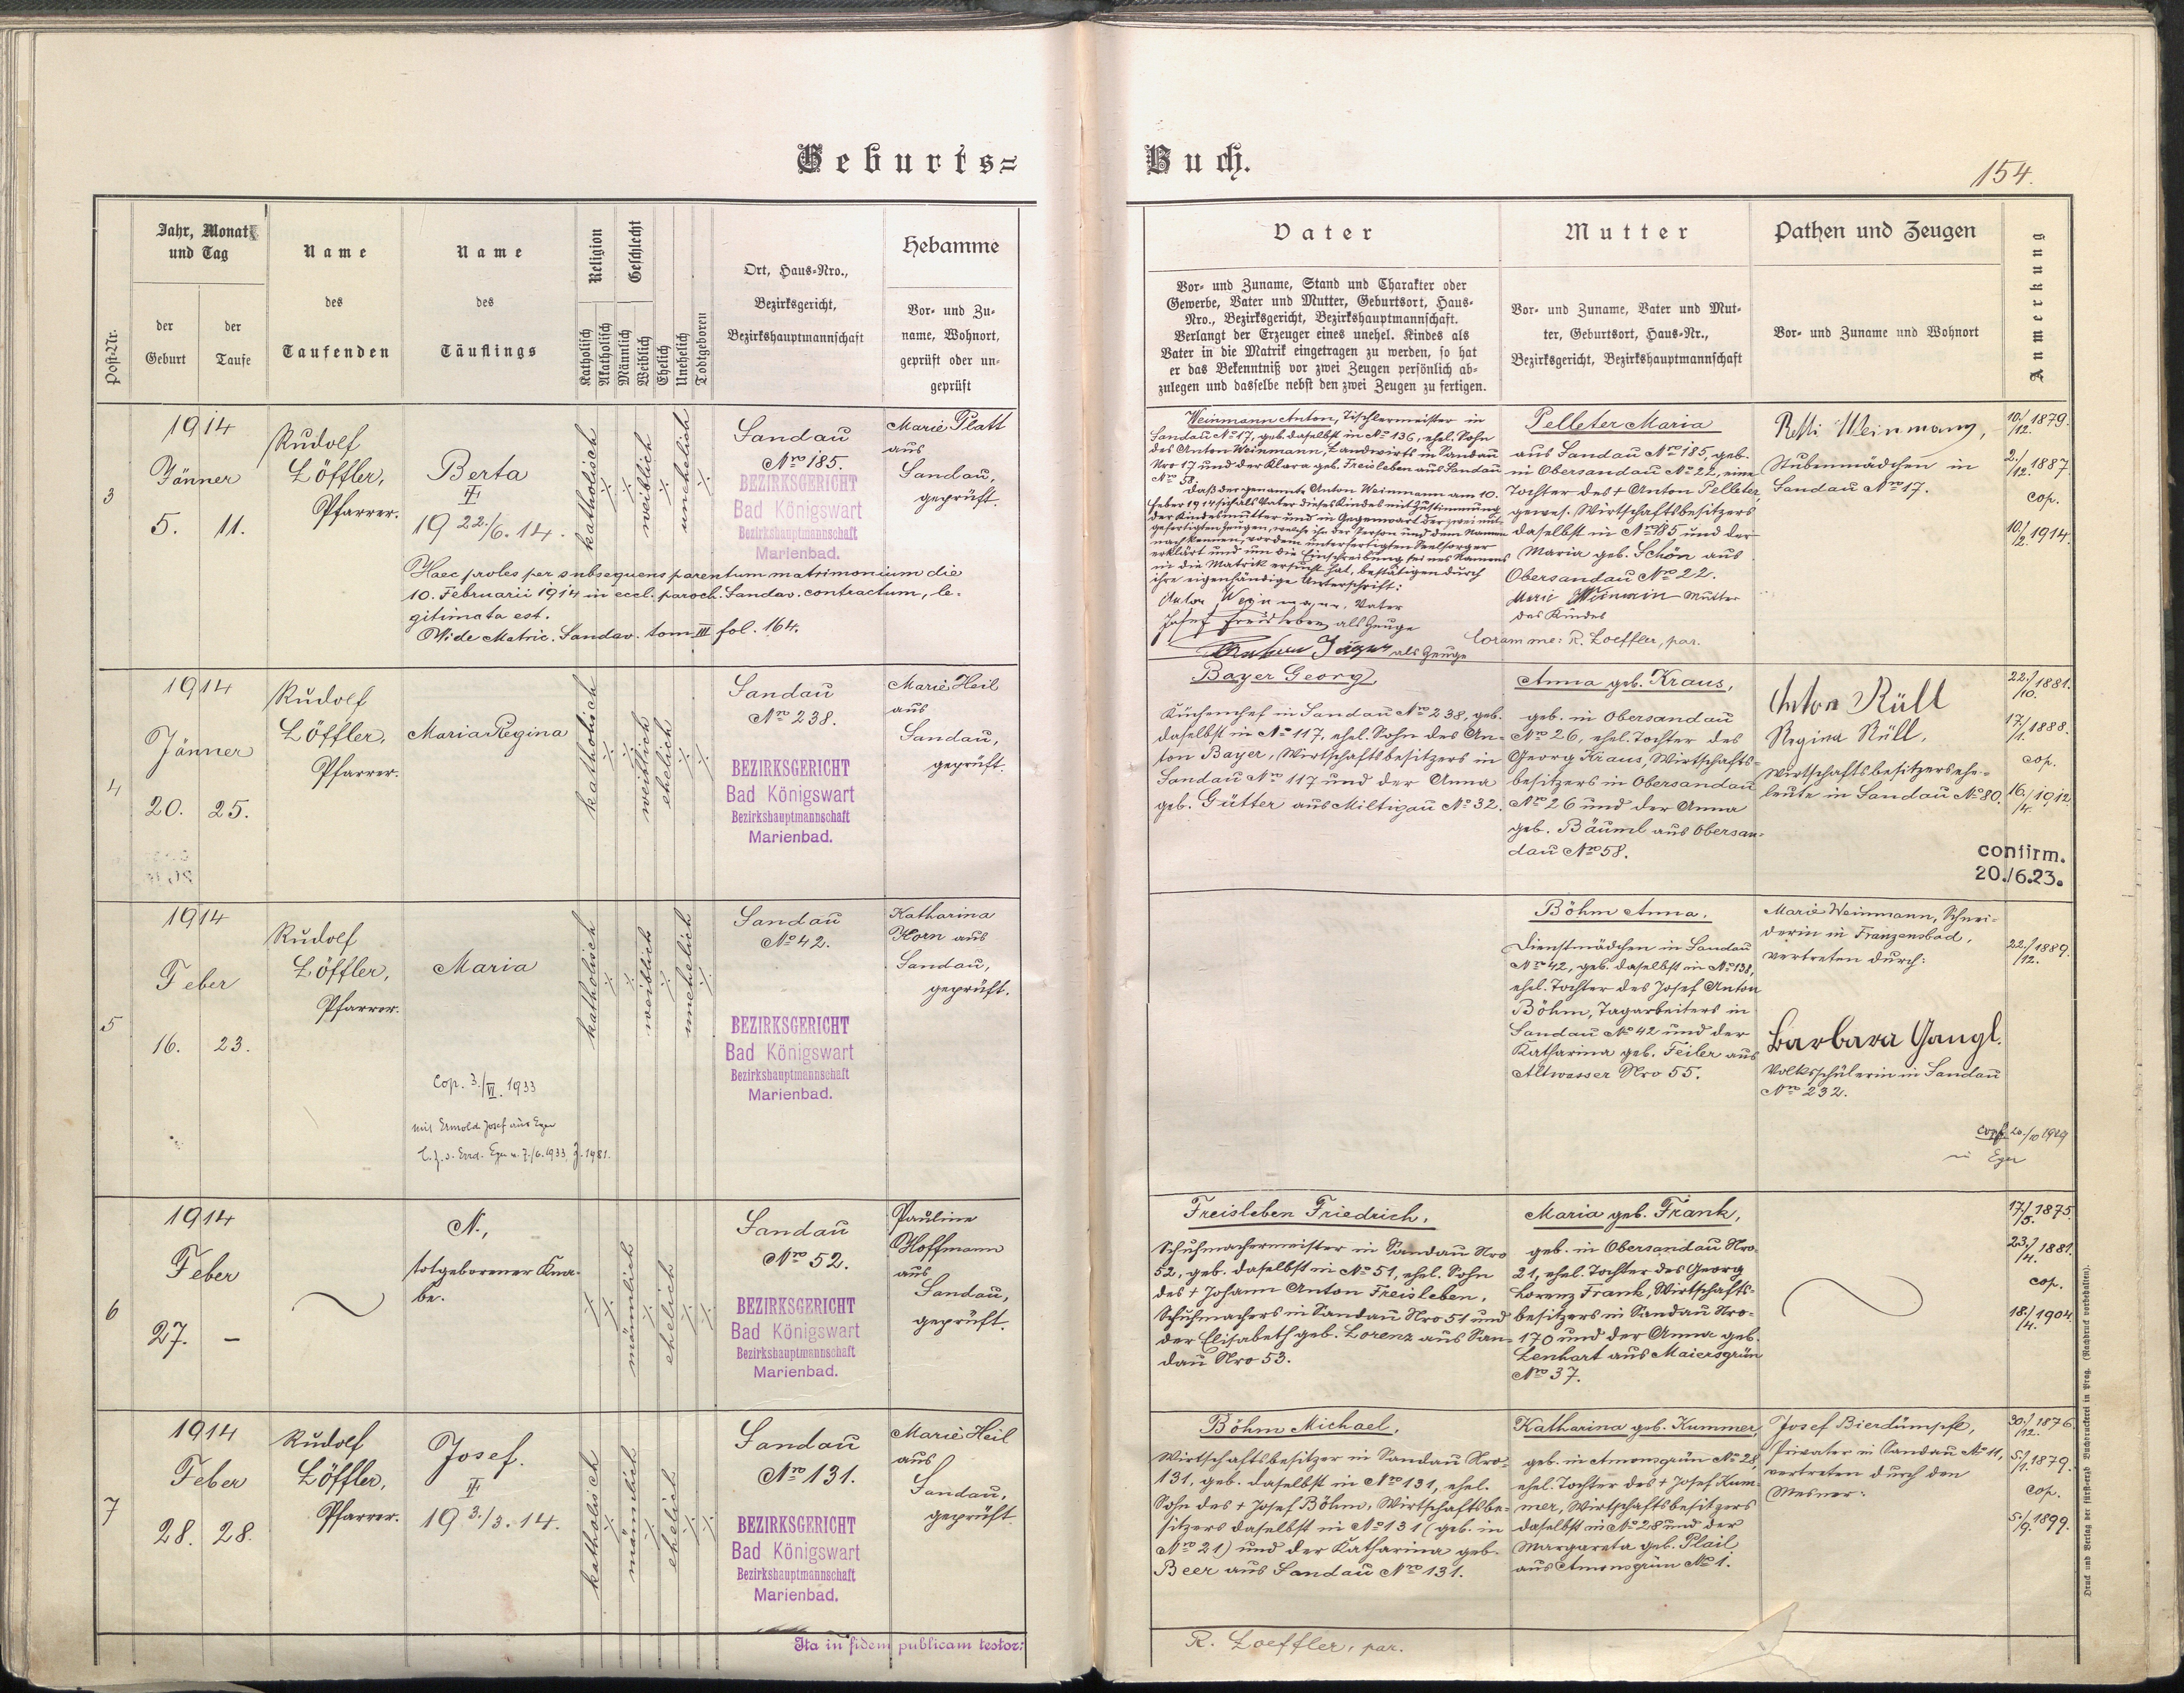 Geburts=
Buch.
154.
Post-Nr.
Jahr, Monat
und Tag
der
Geburt
der
Taufe
Name
des
Taufenden
Name
des
Täuflings
Religion
Katholisch
Akatholisch
Geschlecht
Männlich
Weiblich
Ehelich
Unehelich
Todtgeboren
Ort, Haus-Nro.,
Bezirksgericht,
Bezirkshauptmannschaft
Hebamme
Vor- und Zu-
name, Wohnort,
geprüft oder un-
geprüft
Vater
Vor- und Zuname, Stand und Charakter oder
Gewerbe, Vater und Mutter, Geburtsort, Haus-
Nro., Bezirksgericht, Bezirkshauptmannschaft.
Verlangt der Erzeuger eines unehel. Kindes als
Vater in die Matrik eingetragen zu werden, so hat
er das Bekenntniß vor zwei Zeugen persönlich ab-
zulegen und dasselbe nebst den zwei Zeugen zu fertigen.
Mutter
Vor- und Zuname, Vater und Mut-
ter, Geburtsort, Haus-Nr.,
Bezirksgericht, Bezirkshauptmannschaft
Pathen und Zeugen
Vor- und Zuname und Wohnort
Anmerkung
3
1914
Jänner
5. 11.
Rudolf
Löffler,
Pfarrer.
Berta
II
19 22./6. 14.
katholisch
weiblich
unehelich
Sandau
Nro 185.
BEZIRKSGERICHT
Bad Königswart
Bezirkshauptmannschaft
Marienbad.
Marie Platt
aus
Sandau,
geprüft.
Haec proles per subsequens parentum matrimonium die
10. Februarii 1914 in eccl. paroch. Sandav. contractum, le-
gitimata est.
Vide Matric. Sandav. tom III fol. 164.
Weinmann Anton, Tischlermeister in
Sandau No 17, geb. daselbst in No 136, ehel. Sohn
des Anton Weinmann, Landwirts in Sandau
Nro 17 und der Klara geb. Freisleben aus Sandau
No 58.
Daß der genannte Anton Weinmann am 10.
Feber 1914 sich als Vater dieses Kindes mit Zustimmung
der Kindesmutter und in Gegenwart der zwei mit-
gefertigten Zeugen, welche ihn der Person und dem Namen
nach kennen, vor dem unterfertigten Seelsorger
erklärt und um die Einschreibung seines Namens
in die Matrik ersucht hat, bestätigen durch
ihre eigenhändige Unterschrift:
Anton Weinmann, Vater
Josef Freisleben als Zeuge
Jäger als Zeuge
Pelleter Maria
aus Sandau Nro 185, geb.
in Obersandau No 22, eine
Tochter des + Anton Pelleter,
gewes. Wirtschaftsbesitzers
daselbst in Nro 185 und der
Maria geb. Schön aus
Obersandau Nro 22.
Marie Weinmann Mutter
des Kindes
Coram me: R. Loeffler, par.
Resi Weinmann,
Stubenmädchen in
Sandau Nro 17.
10./12. 1879.
2./12. 1887.
cop.
10./2. 1914.
4
1914
Jänner
20. 25.
Rudolf
Löffler,
Pfarrer.
Maria Regina
katholisch
weiblich
ehelich
Sandau
Nro 238.
BEZIRKSGERICHT
Bad Königswart
Bezirkshauptmannschaft
Marienbad.
Marie Heil
aus
Sandau,
geprüft.
Bayer Georg,
Küchenchef in Sandau Nro 238, geb.
daselbst in No 117, ehel. Sohn des An-
ton Bayer, Wirtschaftsbesitzers in
Sandau Nro 117 und der Anna
geb. Gütter aus Miltigau No 32.
Anna geb. Kraus,
geb. in Obersandau
Nro 26, ehel. Tochter des
Georg Kraus, Wirtschafts-
besitzers in Obersandau
Nro 26 und der Anna
geb. Bäuml aus Obersan-
dau Nro 58.
Anton Rüll
Regina Rüll,
Wirtschaftsbesitzersehe-
leute in Sandau No 80.
22./10. 1881.
17./1. 1888.
cop.
16./4. 1912
confirm.
20./6.23.
5
1914
Feber
16. 23.
Rudolf
Löffler,
Pfarrer.
Maria
Cop. 3./VI. 1933
mit Ermold Josef aus Eger
Eger v. 7./6. 1933, Z. 1981.
katholisch
weiblich
unehelich
Sandau
No 42.
BEZIRKSGERICHT
Bad Königswart
Bezirkshauptmannschaft
Marienbad.
Katharina
Korn aus
Sandau,
geprüft.
Böhm Anna,
Dienstmädchen in Sandau
Nro 42, geb. daselbst in No 138,
ehel. Tochter des Josef Anton
Böhm, Tagarbeiters in
Sandau No 42 und der
Katharina geb. Feiler aus
Altwasser Nro 55.
Marie Weinmann, Schnei-
derin in Franzensbad,
vertreten durch:
Barbara Gangl.
Volksschülerin in Sandau
Nro 232.
22./12. 1889.
cop. 20./10 1929
in Eger
6
1914
Feber
27. –
N.,
totgeborener Kna-
be.
männlich
ehelich
Sandau
Nro 52.
BEZIRKSGERICHT
Bad Königswart
Bezirkshauptmannschaft
Marienbad.
Pauline
Hoffmann
aus
Sandau,
geprüft.
Freisleben Friedrich,
Schuhmachermeister in Sandau Nro
52, geb. daselbst in No 51, ehel. Sohn
des + Johann Anton Freisleben,
Schuhmachers in Sandau Nro 51 und
der Elisabeth geb. Lorenz aus San-
dau Nro 53.
Maria geb. Frank,
geb. in Obersandau Nro
21, ehel. Tochter des Georg
Lorenz Frank, Wirtschafts-
besitzers in Sandau Nro
170 und der Anna geb.
Lenhart aus Maiersgrün
Nro 37.
17./5. 1875.
23./4. 1881.
cop.
18./4. 1904.
7
1914
Feber
28. 28.
Rudolf
Löffler,
Pfarrer.
Josef.
II
19 3./3. 14.
katholisch
männlich
ehelich
Sandau
Nro 131.
BEZIRKSGERICHT
Bad Königswart
Bezirkshauptmannschaft
Marienbad.
Marie Heil
aus
Sandau,
geprüft.
Böhm Michael,
Wirtschaftsbesitzer in Sandau Nro
131, geb. daselbst in Nro 131, ehel.
Sohn des + Josef Böhm, Wirtschaftsbe-
sitzers daselbst in No 131 (geb. in
Nro 21) und der Katharina geb.
Beer aus Sandau Nro 131.
Katharina geb. Kummer,
geb. in Amonsgrün No 28,
ehel. Tochter des + Josef Kum-
mer, Wirtschaftsbesitzers
daselbst in No 28 und der
Margareta geb. Plail
aus Amonsgrün No 1.
Josef Bierdümpfl,
Privater in Sandau No 11,
vertreten durch den
Mesner:
30./12. 1876.
5./1. 1879.
cop.
5./9. 1899.
Ita in fidem publicam testor:
R. Loeffler, par.
Druck und Verlag der fürsterzb. Buchdruckerei in Prag. (Nachdruck vorbehalten).